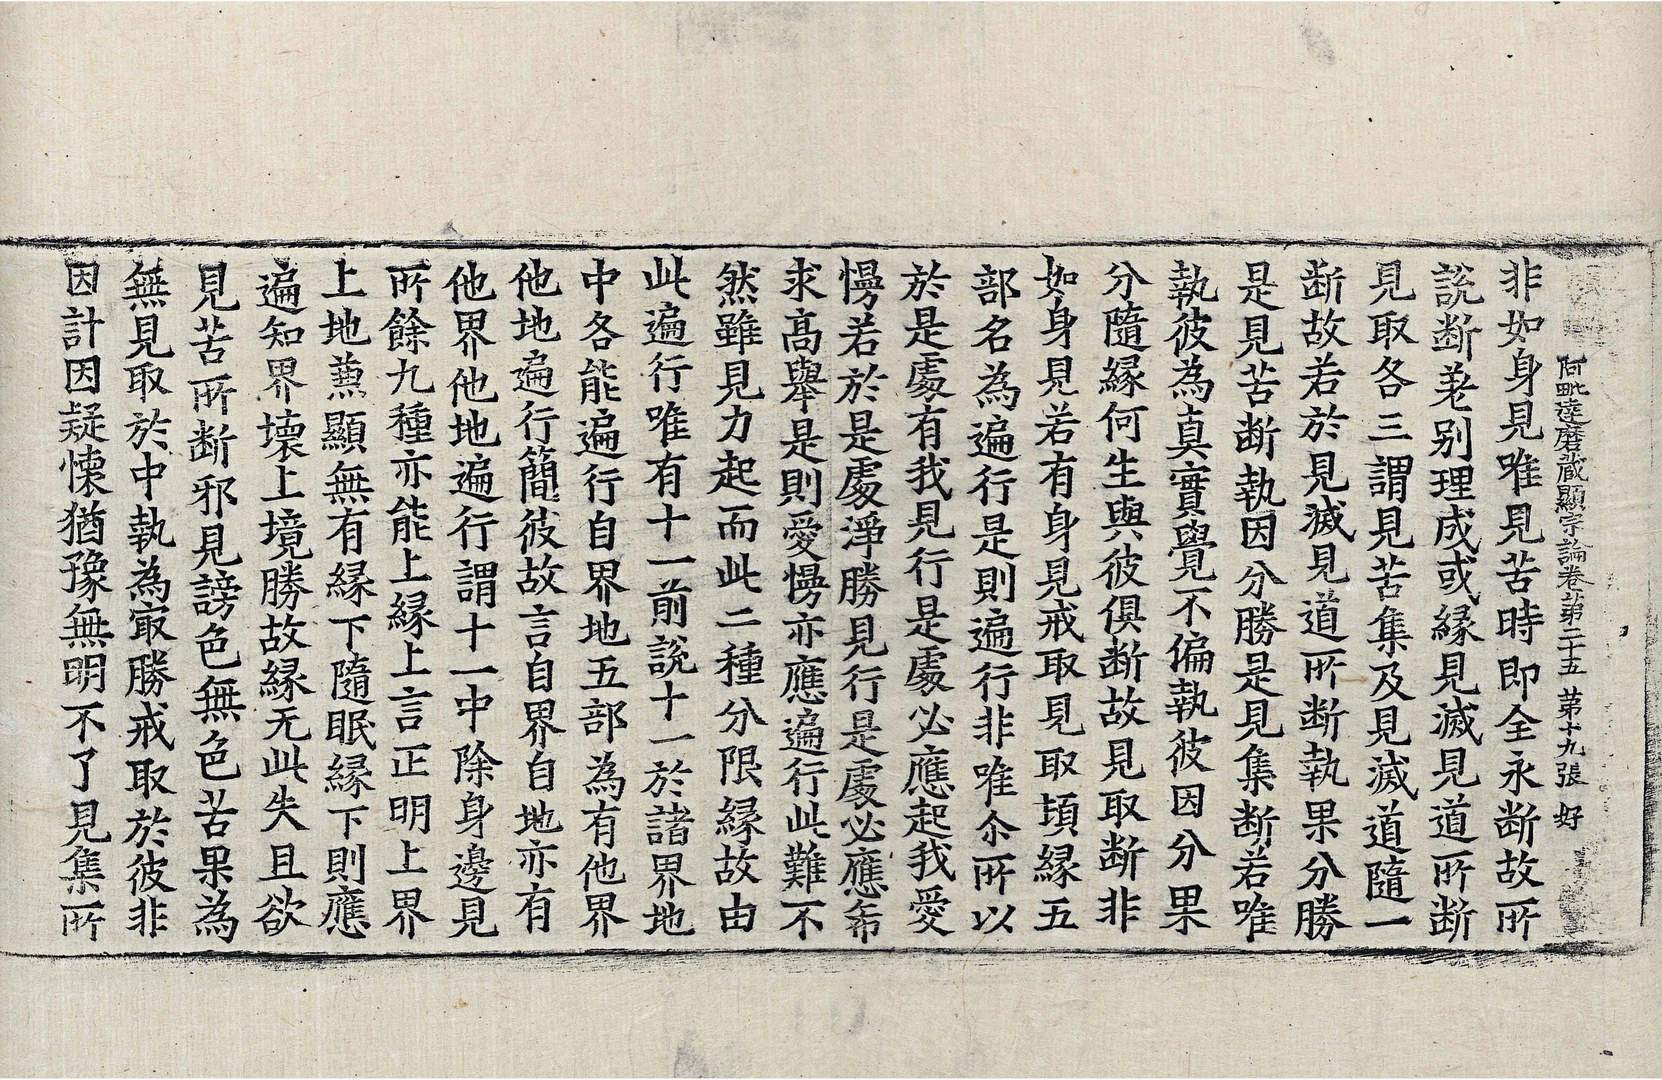 阿毗達磨藏顯宗論卷第二十五 第十九張 好
非如身見唯見苦時即全永断故所
說断差别理成或縁見滅見道所断
見取各三謂見苦集及見滅道隨一
断故若於見滅見道所断執果分勝
是見苦断執因分勝是見集断若唯
執彼為真實覺不偏執彼因分果
分隨縁何生與彼俱断故見取断非
如身見若有身見戒取見取頃縁五
部名為遍行是則遍行非唯尒所以
於是處有我見行是處必應起我愛
慢若於是處淨勝見行是處必應希
求高舉是則愛慢亦應遍行此難不
然雖見力起而此二種分限縁故由
此遍行唯有十一前說十一於諸界地
中各能遍行自界地五部為有他界
他地遍行簡彼故言自界自地亦有
他界他地遍行謂十一中除身邊見
所餘九種亦能上縁上言正明上界
上地蒹顯無有縁下隨眠縁下則應
遍知界壊上境勝故縁无此失且欲
見苦所断邪見謗色無色苦果為
無見取於中執為㝡勝戒取於彼非
因計因疑懐猶豫無明不了見集所